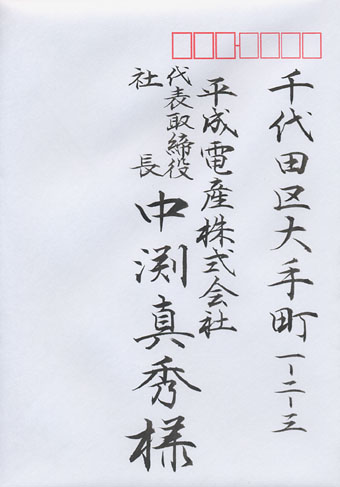 千代田区大手町一-二-三
平成電産株式会社
代表取締役
社長
中渕真秀様